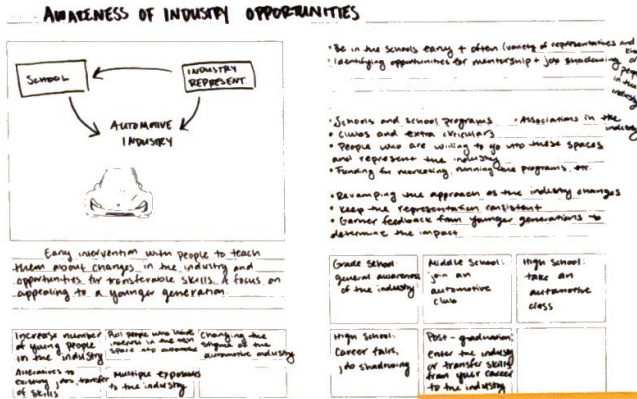 AWARENESS OF INDUSTRY OPPORTUNITIES
SCHOOL
INDUSTRY
REPRESENT.
AUTOMOTIVE
INDUSTRY
Early intervention with people to teach
them about changes in the industry and
opportunities for transferable skills. A focus on
appealing to a younger generation
Increase number
of young people
in the industry
Pull people who have
interest in the tech
space into automotive
Changing the
stigma of the
automotive industry
Alternatives to
existing jobs, transfer
of skills
Multiple exposures
to the industry
• Be in the schools early + often (variety of representatives and
• Identifying opportunities for mentorship + job shadowing
in the
industry
• Schools and school programs
• Associations in the
industry
• Clubs and extra
• People who are willing to go into these spaces
and represent the industry
• Funding for marketing, running the programs, etc.
• Revamping the approach as the industry changes
• Keep the representation consistent
• Garner feedback from younger generations to
determine the impact
Grade School:
general awareness
of the industry
Middle School:
join an
automotive
club
High School:
take an
automotive
class
High School:
Career fairs,
job shadowing
Post-graduation:
enter the industry
or transfer skills
from your career
to the industry